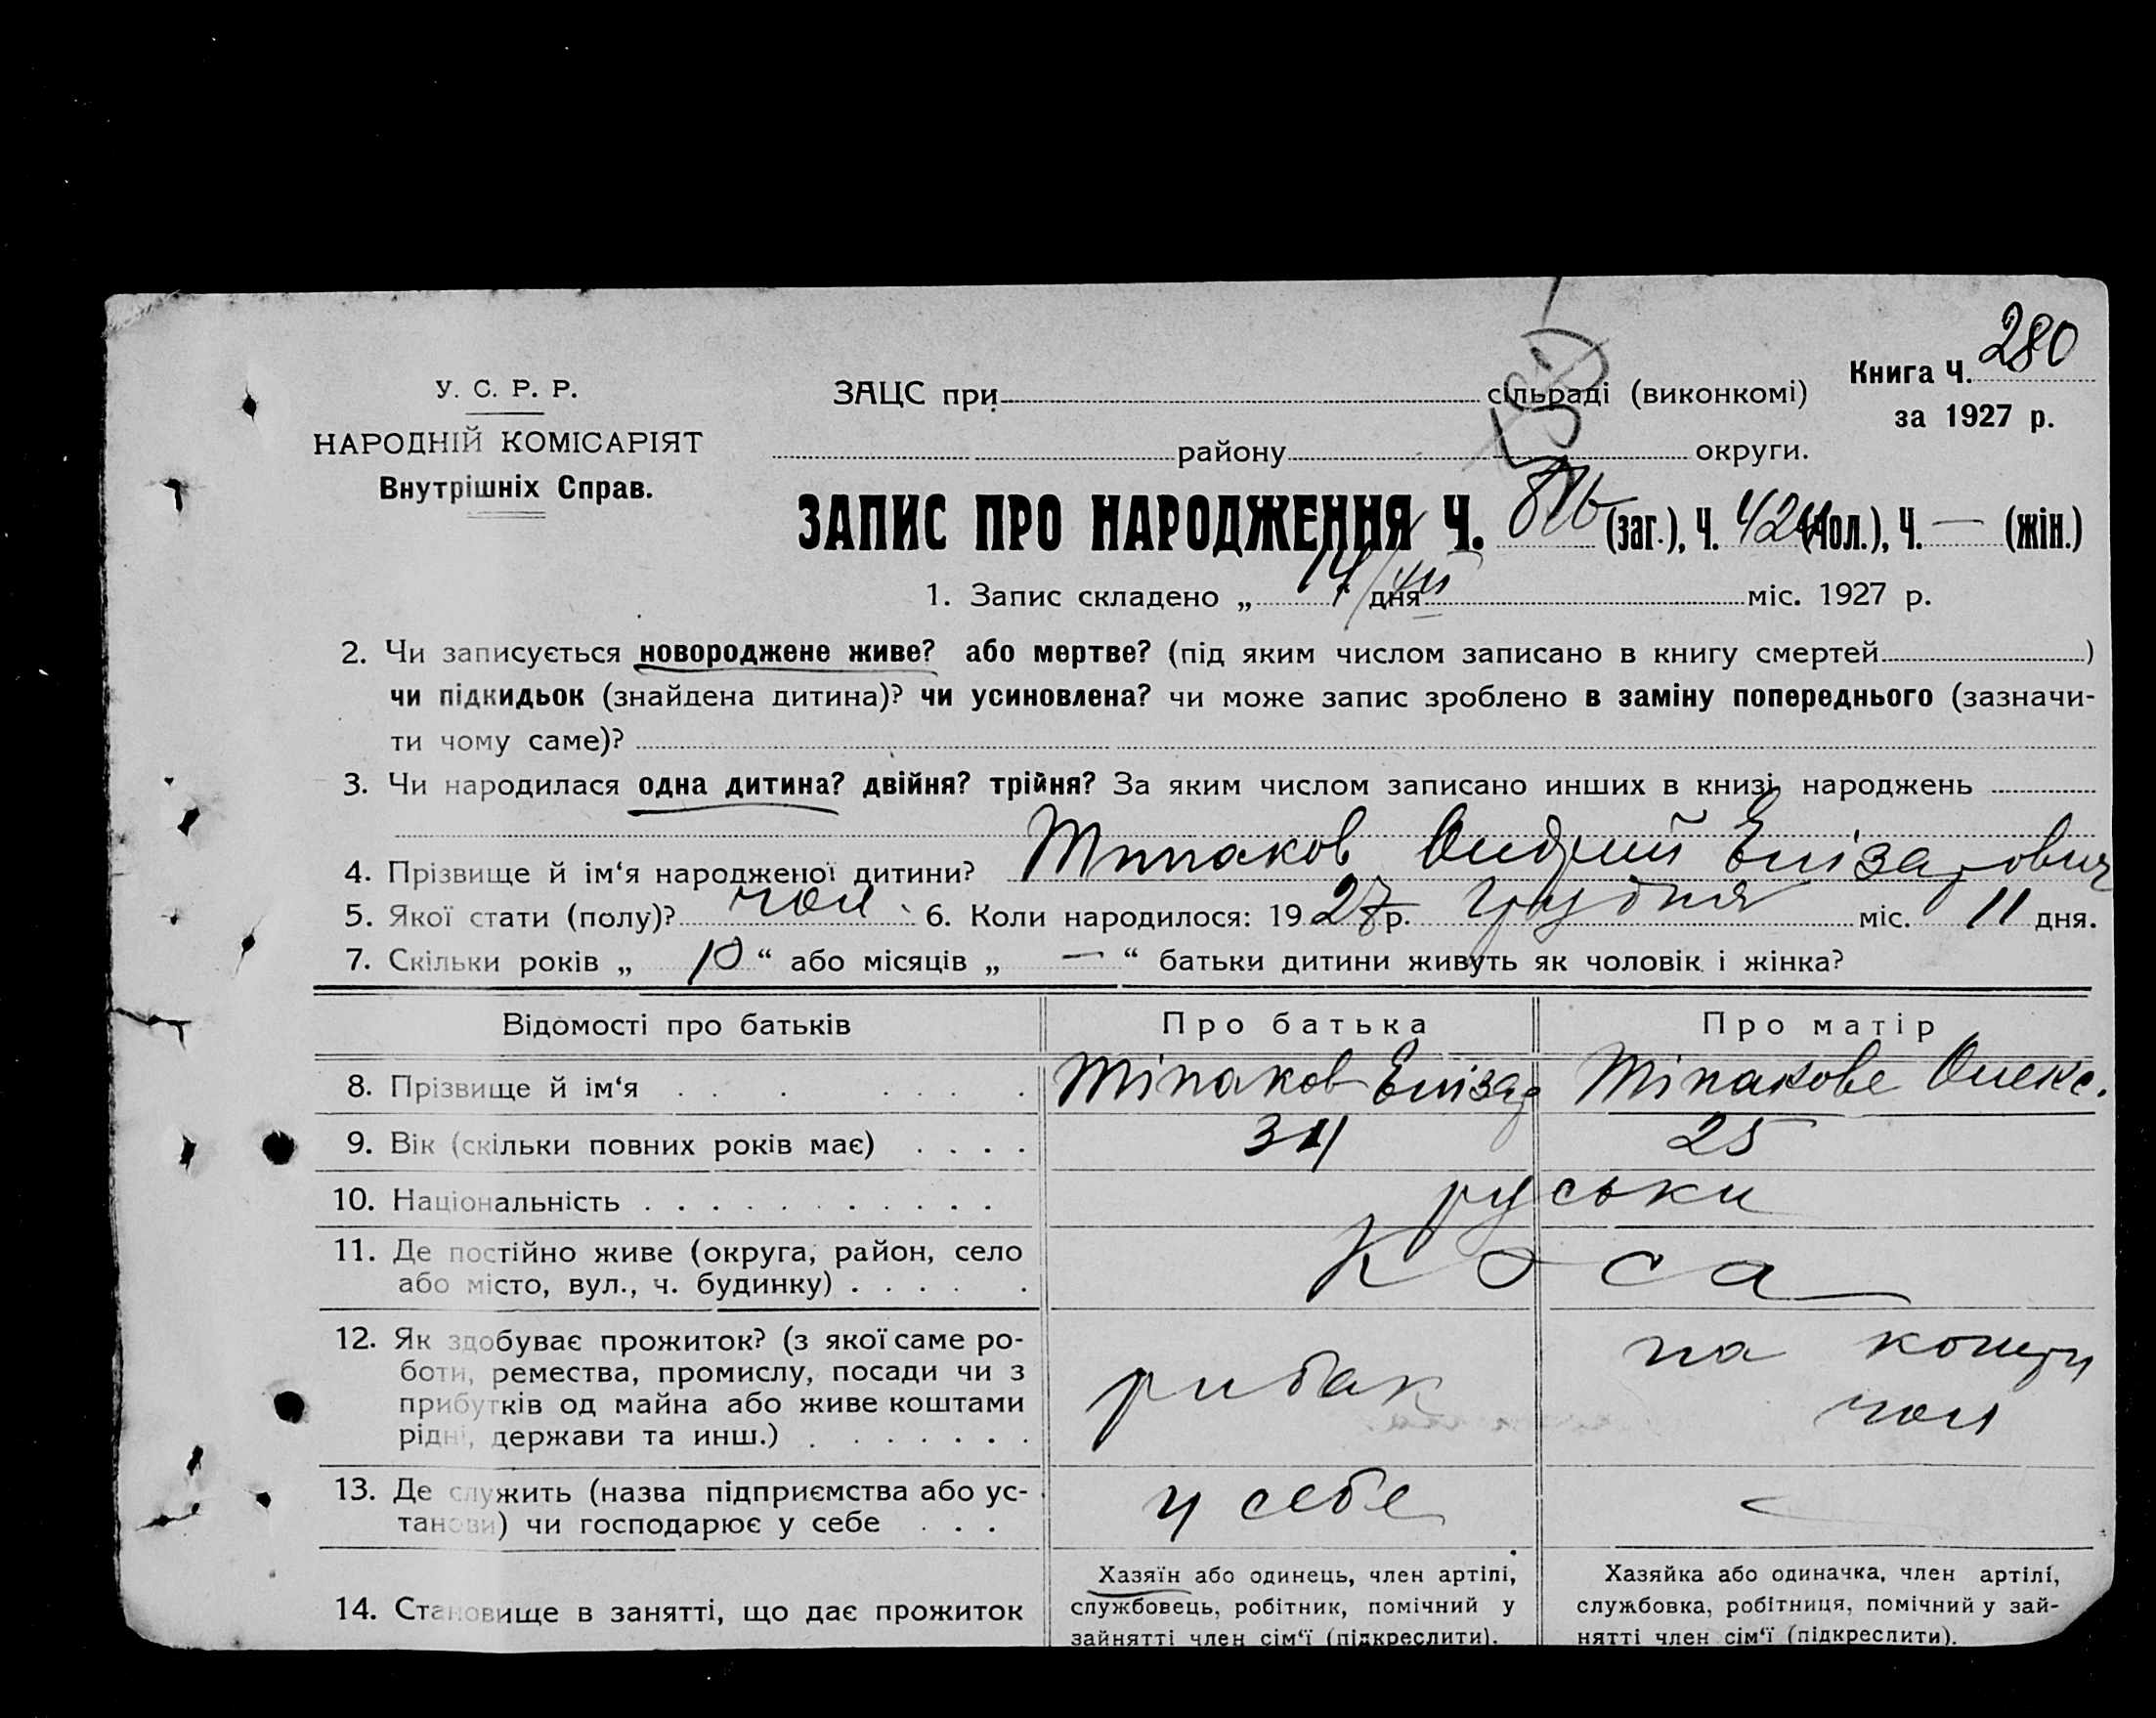 280
У. С. Р. Р.
ЗАЦС при сільраді (виконкомі)
Книга Ч.
за 1927 р.
НАРОДНІЙ КОМІСАРІЯТ
району округи.
Внутрішніх Справ.
ЗАПИС ПРО НАРОДЖЕННЯ Ч. (заг.), Ч. 424 (чол.), Ч. — (жін.)
1. Запис складено „ 14/XII дня міс. 1927 р.
2. Чи записується новороджене живе? або мертве? (під яким числом записано в книгу смертей )
чи підкидьок (знайдена дитина)? чи усиновлена? чи може запис зроблено в заміну попереднього (зазначи-
ти чому саме)?
3. Чи народилася одна дитина? двійня? трійня? За яким числом записано инших в книзі народжень
4. Прізвище й ім‘я народженої дитини? Андрий Елізарович
5. Якої стати (полу)? чол 6. Коли народилося: 1927 р. грудня міс. 11 дня.
7. Скільки років „ 10 “ або місяців „ — “ батьки дитини живуть як чоловік і жінка?
Відомості про батьків Про батька Про матір
8. Прізвище й ім‘я Тіпаков Елізар Тіпакове Олекс.
9. Вік (скільки повних років має) 34 25
10. Національність руськи
11. Де постійно живе (округа, район, село
або місто, вул., ч. будинку) Коса
12. Як здобуває прожиток? (з якої саме ро-
боти, ремества, промислу, посади чи з
прибутків од майна або живе коштами
рідні, держави та инш.) рибак на кошти чол
13. Де служить (назва підприємства або ус-
танови) чи господарює у себе у себе —
14. Становище в занятті, що дає прожиток
Хазяїн або одинець, член артілі,
службовець, робітник, помічний у
зайнятті член сім‘ї (підкреслити).
Хазяйка або одиначка, член артілі,
службовка, робітниця, помічний у зай-
нятті член сім‘ї (підкреслити).